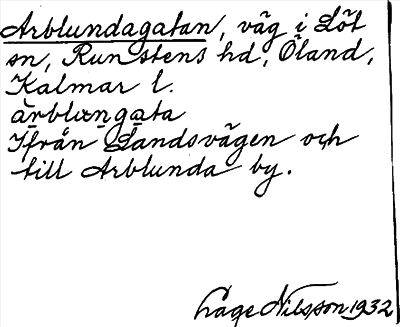 Arblundagatan, väg i Löt
sn, Runstens hd, Öland,
Kalmar l.
ärblungata
Ifrån Landsvägen och
till Arblunda by.
Låge Nilsson 1932